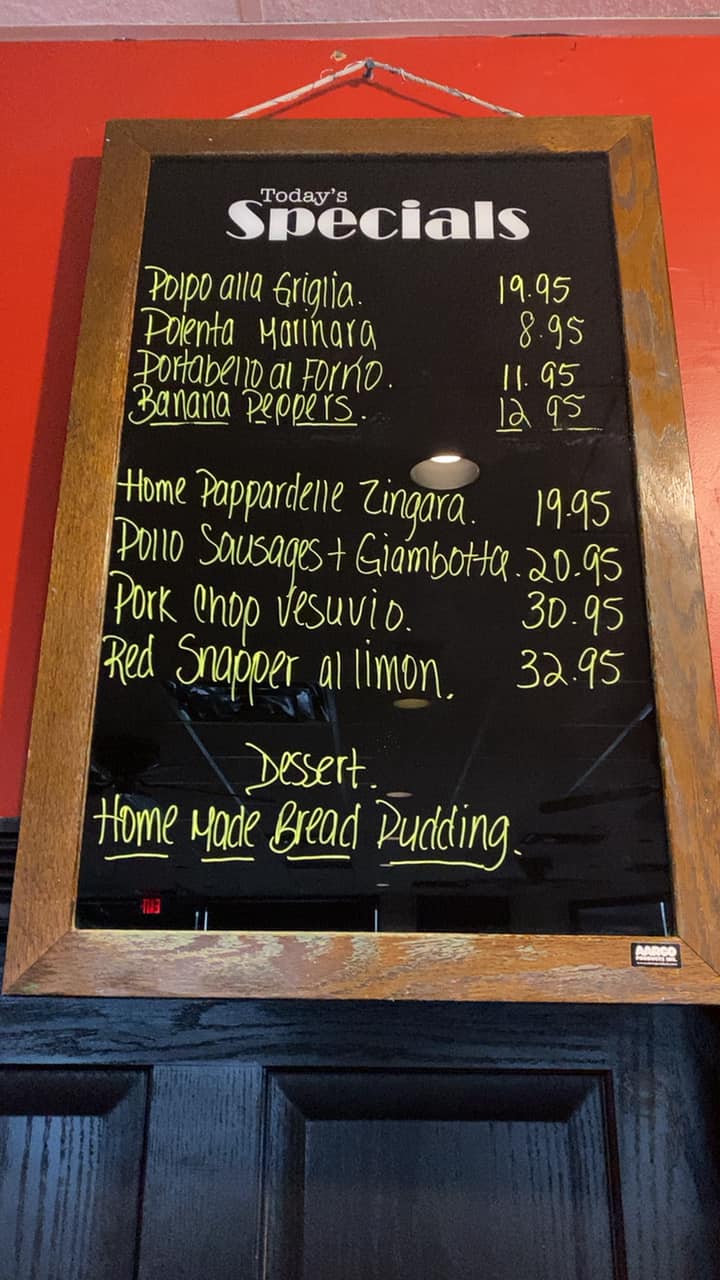 Today's
Specials
Polpo alla Griglia. 19.95
Polenta Marinara 8.95
Portabello al Forno. 11.95
Banana Peppers. 12 95
Home Pappardelle Zingara. 19.95
Pollo Sausages + Giambotta. 20.95
Pork Chop Vesuvio. 30.95
Red Snapper al limon. 32.95
Dessert.
Home Made Bread Pudding.
EXIT
AARCO
PRODUCTS INC.